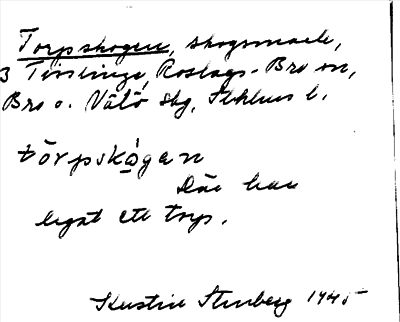 Torpskogen, skogsmark,
3 Tisslinge, Roslags-Bro sn,
Bro o. Vätö skg, Sthlms l.
törpskògan
Där har
legat ett torp.
Kerstin Stenberg 1945